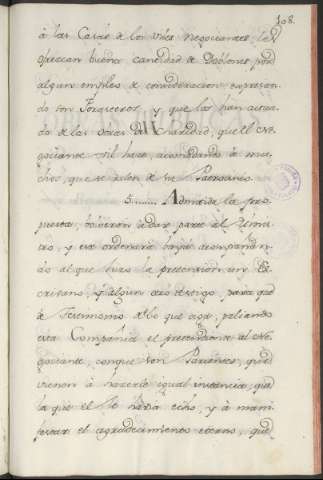 108.
à las Casas de los tales Negociantes, les
ofrezcan buena cantidad de Doblones por
algun empleo de consideracion, expresan-
do son Forasteros, y que los han acerta-
do de las veras al Navidad, que el Ne-
gociante tal hace, acomodando à mu-
chos, que se valen de su Patrocinio.
5....... Admitida la pro-
puesta, bolveran à dar parte al Minis-
tro, y este ordenará baya acompañan-
do al que hizo la pretension un Es-
crivano, y algun otro testigo, para que
de Testimonio de lo que oyga, paliando
esta Compañia el pretendiente al Ne-
gociante, con que son Parientes, que
vienen à hacerle igual instancia, que
la que el le havia echo, y à mani-
festar el agradecimiento eterno, que